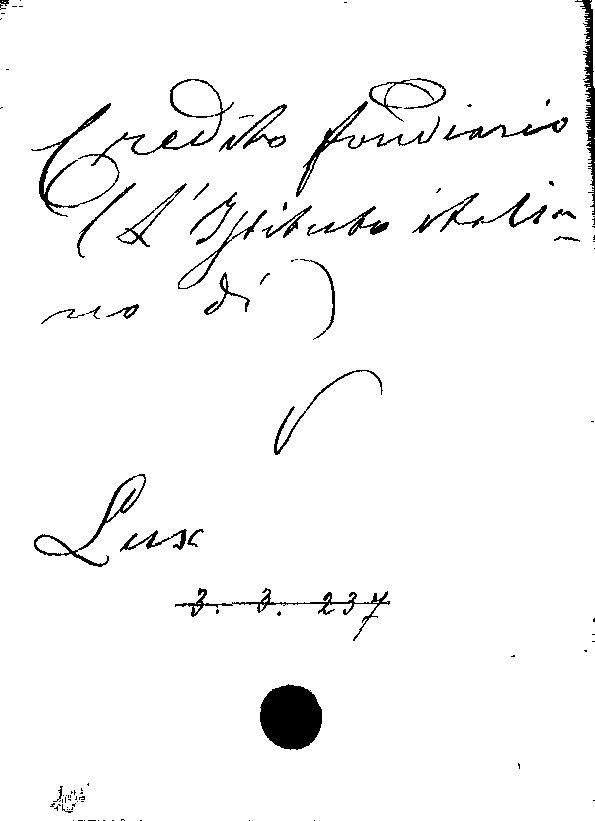 Credito fondiario
(L'Istituto italia-
no di)
Lux
3. 3. 237